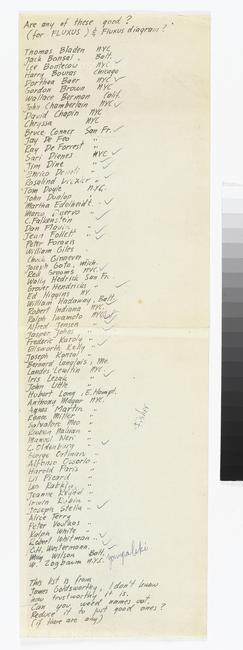 Are any of these good?
(for FLUXUS) & Fluxus diagram?
Thomas Bladen NYC
Jack Bonsal, Balt.
Lee Bontecou NYC ✓
Harry Bouras Chicago
Dorothea Baer NYC ✓
Gordon Brown NYC
Wallace Berman Calif.
John Chamberlain NYC ✓
David Chapin NYC
Chryssa NYC
Bruce Conner San Fr. ✓
Jay De Feo "
Ray De Forrest "
Sari Dienes NYC ✓
Jim Dine " ✓
Enrico
Rosalind
Tom Doyle N.Y.C.
John Dunlop "
Martha Edelheit " ✓
Marco
C. Falkenstein ✓
Dan Flavin " ✓
Jean Follett " ✓
Peter Forakis
William Giles
Chuck Ginnever
Joseph Goto, Mich.
Red Grooms NYC ✓
Wally Hedrick San Fr.
Grover Hendricks
Ed Higgins NY.
William Hadaway, Balt.
Robert Indiana NYC.
Ralph Iwamoto NYC ✓
Alfred Jensen " ✓
Jasper Johns " ✓
Frederic Karoly " ✓
Ellsworth Kelly " ✓
Joseph Konzal "
Bernard Langlais, Me.
Landes Lewitin NYC ✓
Iris Lezak " ✓
John Little "
Hubert Long, E. Hampt.
Anthony Magar NYC.
Agnes Martin "
Kante Miller "
Salvatore Meo "
Reuben
Manuel Neri " ✓
C. Oldenburg " ✓
George Ortman "
Alfonso Ossorio "
Harold Paris "
Lil Picard "
Leo Rabkin "
Jeanne Reynal "
Irwin Rubin " ✓
Joseph Stella " ✓
Alice Terry
Peter Voulkos "
Ralph White "
Robert Whitman " ✓
C.H. Westermann ✓
May Wilson Balt.
W. Zogbaum N.Y.C.
This list is from
James Goldsworthy, I don't know
how trustworthy it is.
Can you weed names out.
Reduce it to just good ones?
(if there are any)